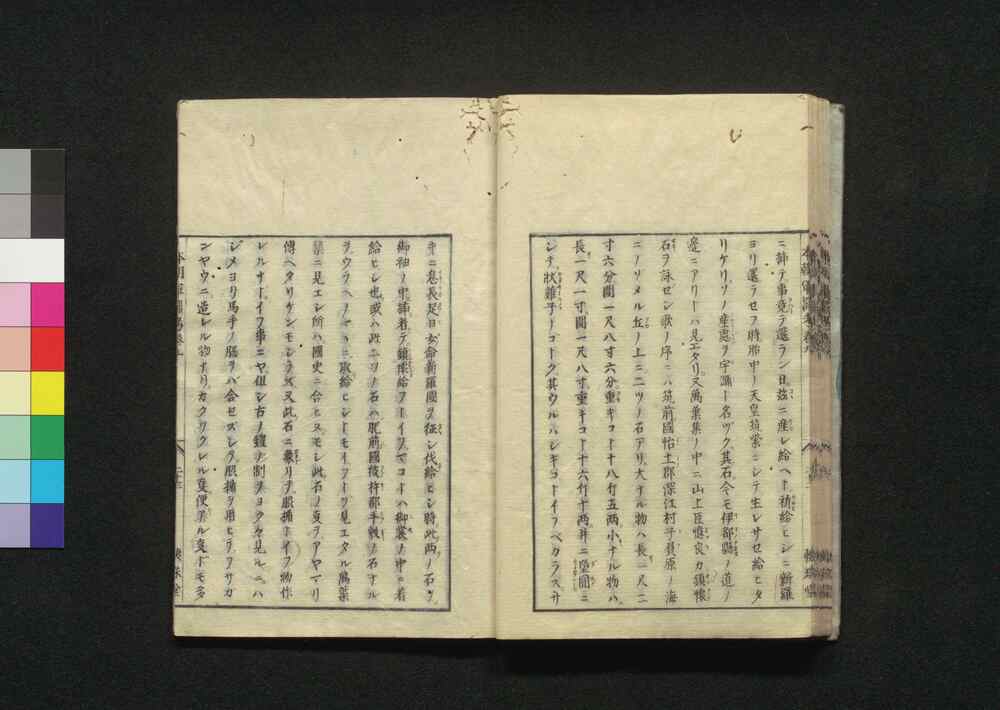 ニ挿テ事竟テ還ラン日茲ニ産レ給ヘト祈給ヒシニ新羅
ヨリ還ラセヲ時胎中ノ天皇筑紫ニシテ生レサセ給ヒタ
リケリソノ産處ヲ宇瀰ト名ヅク其石今モ伊都縣ノ道ノ
邊ニアリトハ見エタリ又萬葉集ノ中ニ山上臣憶良カ鎮懐
石ヲ詠ゼシ歌ノ序ニハ筑前國怡土郡深江村子負原ノ海
ニノソメル丘ノ上ニ二ツノ石アリ大ナル物ハ長一尺二
寸六分圍一尺八寸六分重キコト十八斤五兩小ナル物ハ
長一尺一寸圍一尺八寸重キコト十六斤十兩并ニ堕圓ニ
シテ狀雞子ノコトク其ウルハシキコトイフベカラスサ
キニ息長足日女命新羅國ヲ征シ伐給ヒシ時此兩ノ石ヲ
御袖ノ中挿着テ鎮懐給フトイフマコトハ御裳ノ中ニ着
給ヒシ也或ハ此二ツノ石ハ肥前國彼杵郡平敷ノ石ナル
ヲウラヘノマヽニ取給ヒシトモイフトソ見エタル萬葉
集ニ見エシ所ハ國史ニ合ヒスモシ此石ノ夏ラアヤマリ
傳ヘタリケンモシラズ又此石ニ象リヲ脇楯トイフ物作
レルナトイフ事ニヤ但シ古ノ鎧ノ割ヲヨク々見ルニハ
ジメヨリ馬手ノ脇ヲバ合セズシテ脇楯ヲ用ヒテフサカ
ンヤウニ造レル物ナリカクツクレル夏便アル夏ドモ多